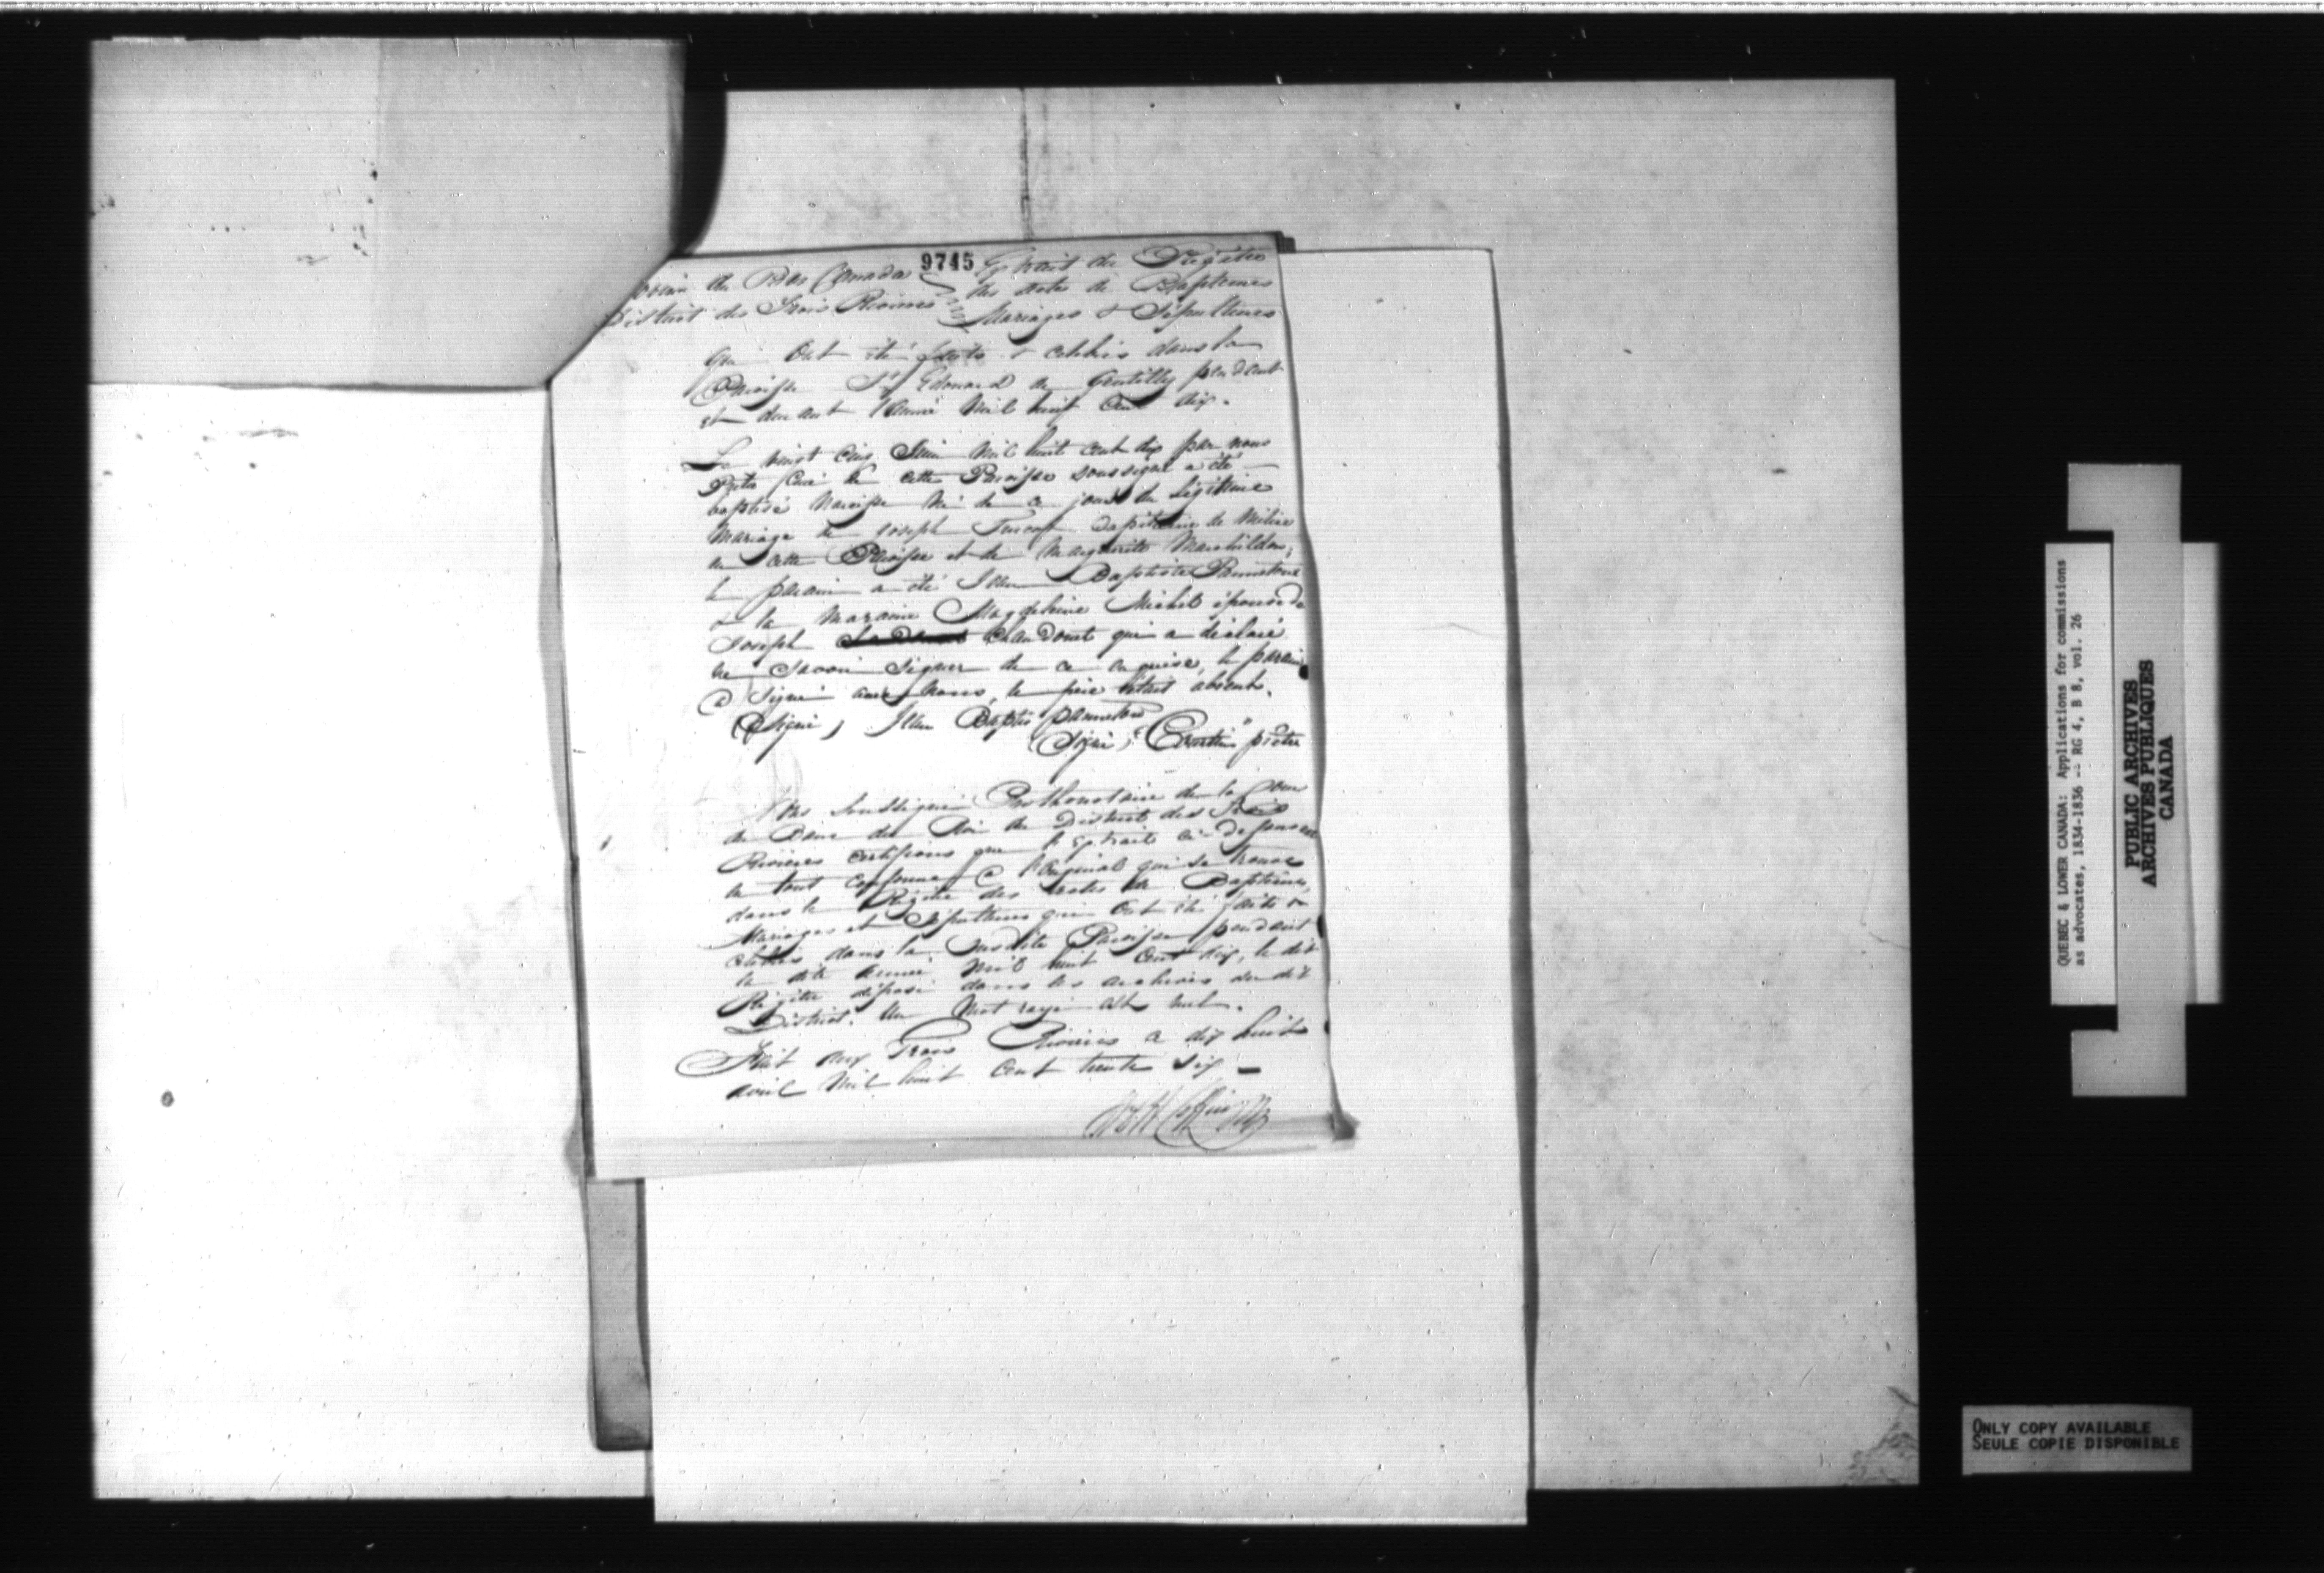 9745
du Bas Canada
District des Trois Rivieres
Extrait du Régitre
des actes de Baptemes
Mariages & Sépultures
qui Ont été faits & célébrés dans la
Paroisse St Edouard de Gentilly pendant
et durant l'année Mil huit Cent dix.
Le vingt cinq Juin Mil huit cent dix par nous
Prêtre Curé de cette Paroisse soussigné a été
baptisé Narcisse né de ce jour du légitime
Mariage de Joseph Capitaine de Milice
de cette Paroisse et de Marguerite Marchildon;
le parain a été Jean Baptiste Pannetons
& la Maraine Magdeleine Michel épouse de
Joseph Chandonet qui a déclaré
ne savoir signer de ce enquise, le parain
a signé avec nous, le père étant absent.
(Signé) Jean Baptis pannetons
(Signé) prêtre
Nous Soussigné Prothonotaire de la Cour
du Banc du Roi du District des Trois
Rivières certifions que l'Extrait ci-dessus est
en tout conforme à l'original qui se trouve
dans le Régitre des actes de Baptêmes,
Mariages et Sépultures qui Ont été faits &
célébrés dans la susdite Paroisse pendant
la dite année Mil huit Cent dix, le dit
Régitre déposé dans les archives du dit
District. Un Mot rayé est nul.
Fait aux Trois Rivières ce dix huit
avril Mil huit Cent trente six —
QUEBEC & LOWER CANADA: Applications for commissions
as advocates, 1834-1836 -- RG 4, B 8, vol. 26
PUBLIC ARCHIVES
ARCHIVES PUBLIQUES
CANADA
ONLY COPY AVAILABLE
SEULE COPIE DISPONIBLE